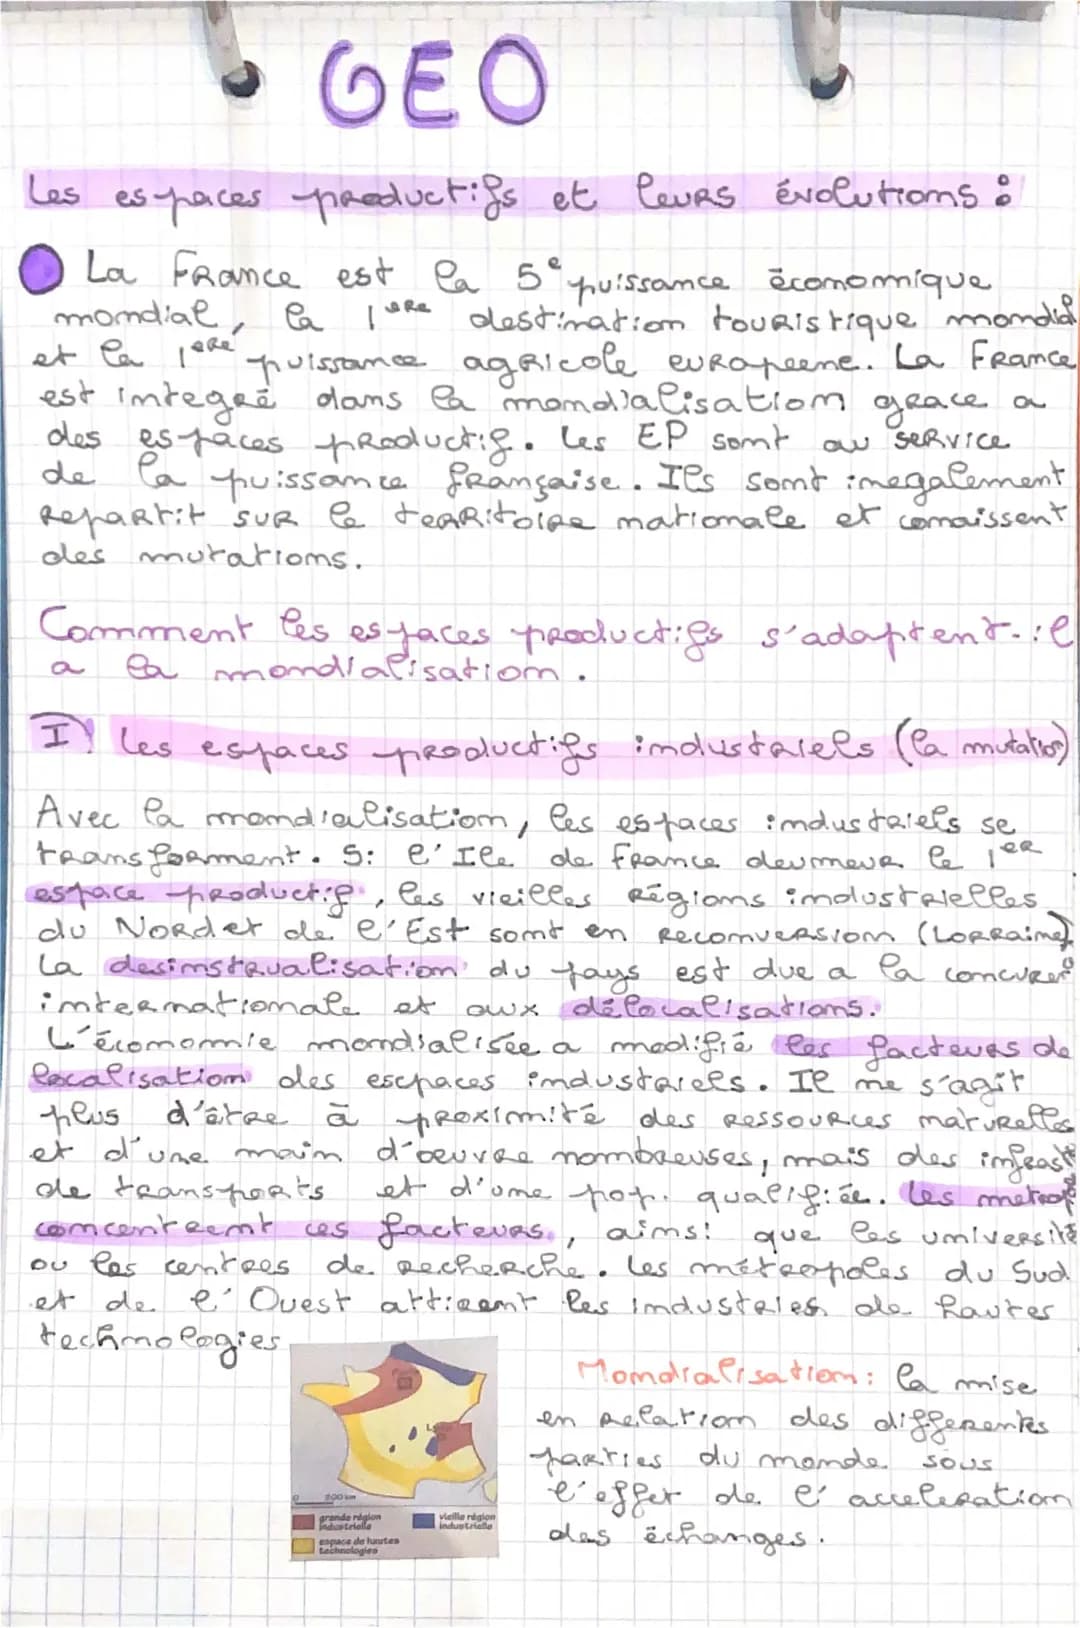 GEO
Les espaces productifs et leurs évolutions :
La France est la 5e puissance économique
mondial, la 1ere destination touristique mondial
et la 1ere puissance agricole europeene. La France
est integré dans la mondialisation grace a
des espaces productif. Les EP sont au service
de la puissance française. Ils sont inegalement
repartit sur le territoire nationale et connaissent
des mutations.
Comment les espaces productifs s'adaptent-il
a la mondialisation.
I) Les espaces productifs industriels (la mutation)
Avec la mondialisation, les espaces industriels se
transforment. Si l'Ile de France deumeur le 1er
espace productif, les vieilles régions industrielles
du Nord et de l'Est sont en reconversion (Lorraine)
La desinstrualisation du pays est due a la
internationale et aux délocalisations.
L'économie mondialisée a modifié les facteurs de
localisation des escpaces industriels. Il ne s'agit
plus d'être à proximité des ressources naturelles
et d'une main d'oeuvre nombreuses, mais des
de transports et d'une pop. qualifiée. Les
concentrent ces facteurs, ainsi que les université
ou les centres de recherche. Les métropoles du Sud
et de l'Ouest attirent les industries de hautes
technologies
Mondialisation : la mise
en relation des differentes
parties du monde sous
l'effet de l'acceleration
des échanges.
0 200 km
grande région industrielle
vieille région industrielle
espace de hautes technologies